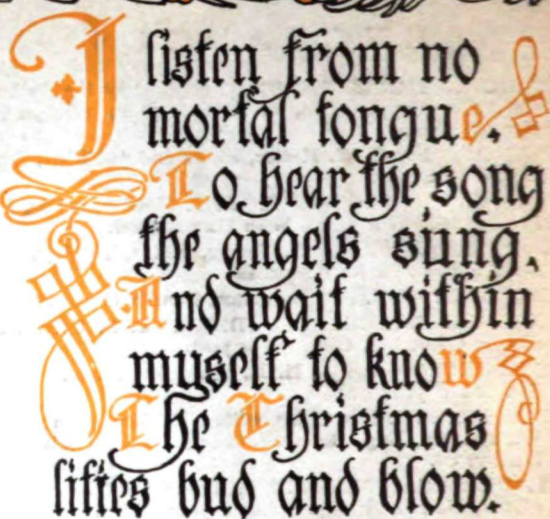 I listen from no
mortal tongue.
To hear the song
the angels sung.
And wait within
myself to know
The Christmas
lilies bud and blow.